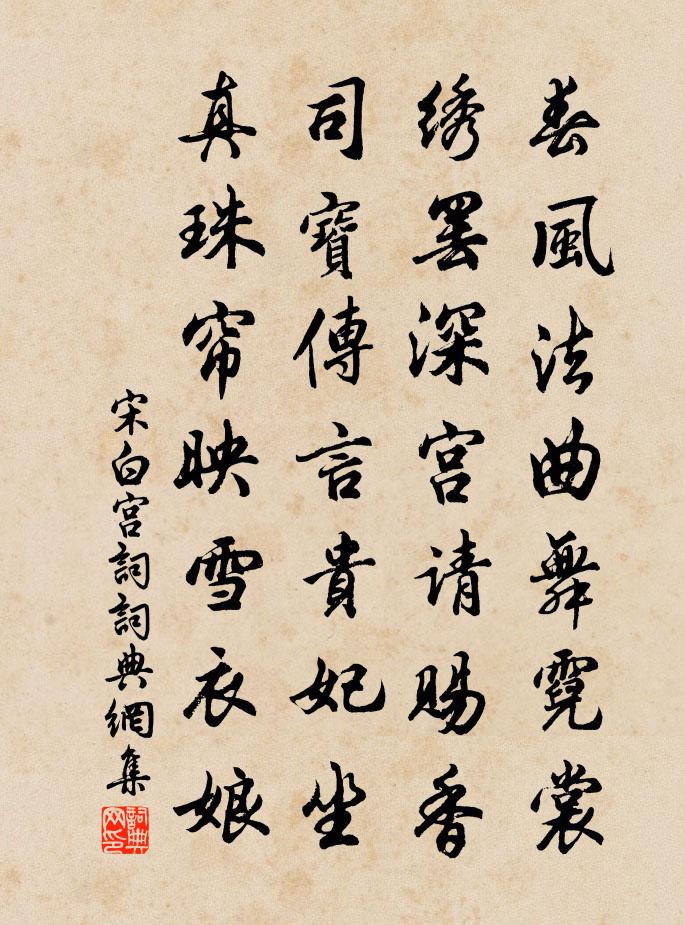 春風法曲舞霓裳
绣罢深宫请赐香
司寶傳言貴妃坐
真珠帘映雪衣娘
宋白宫詞詞典網集
詞典网印